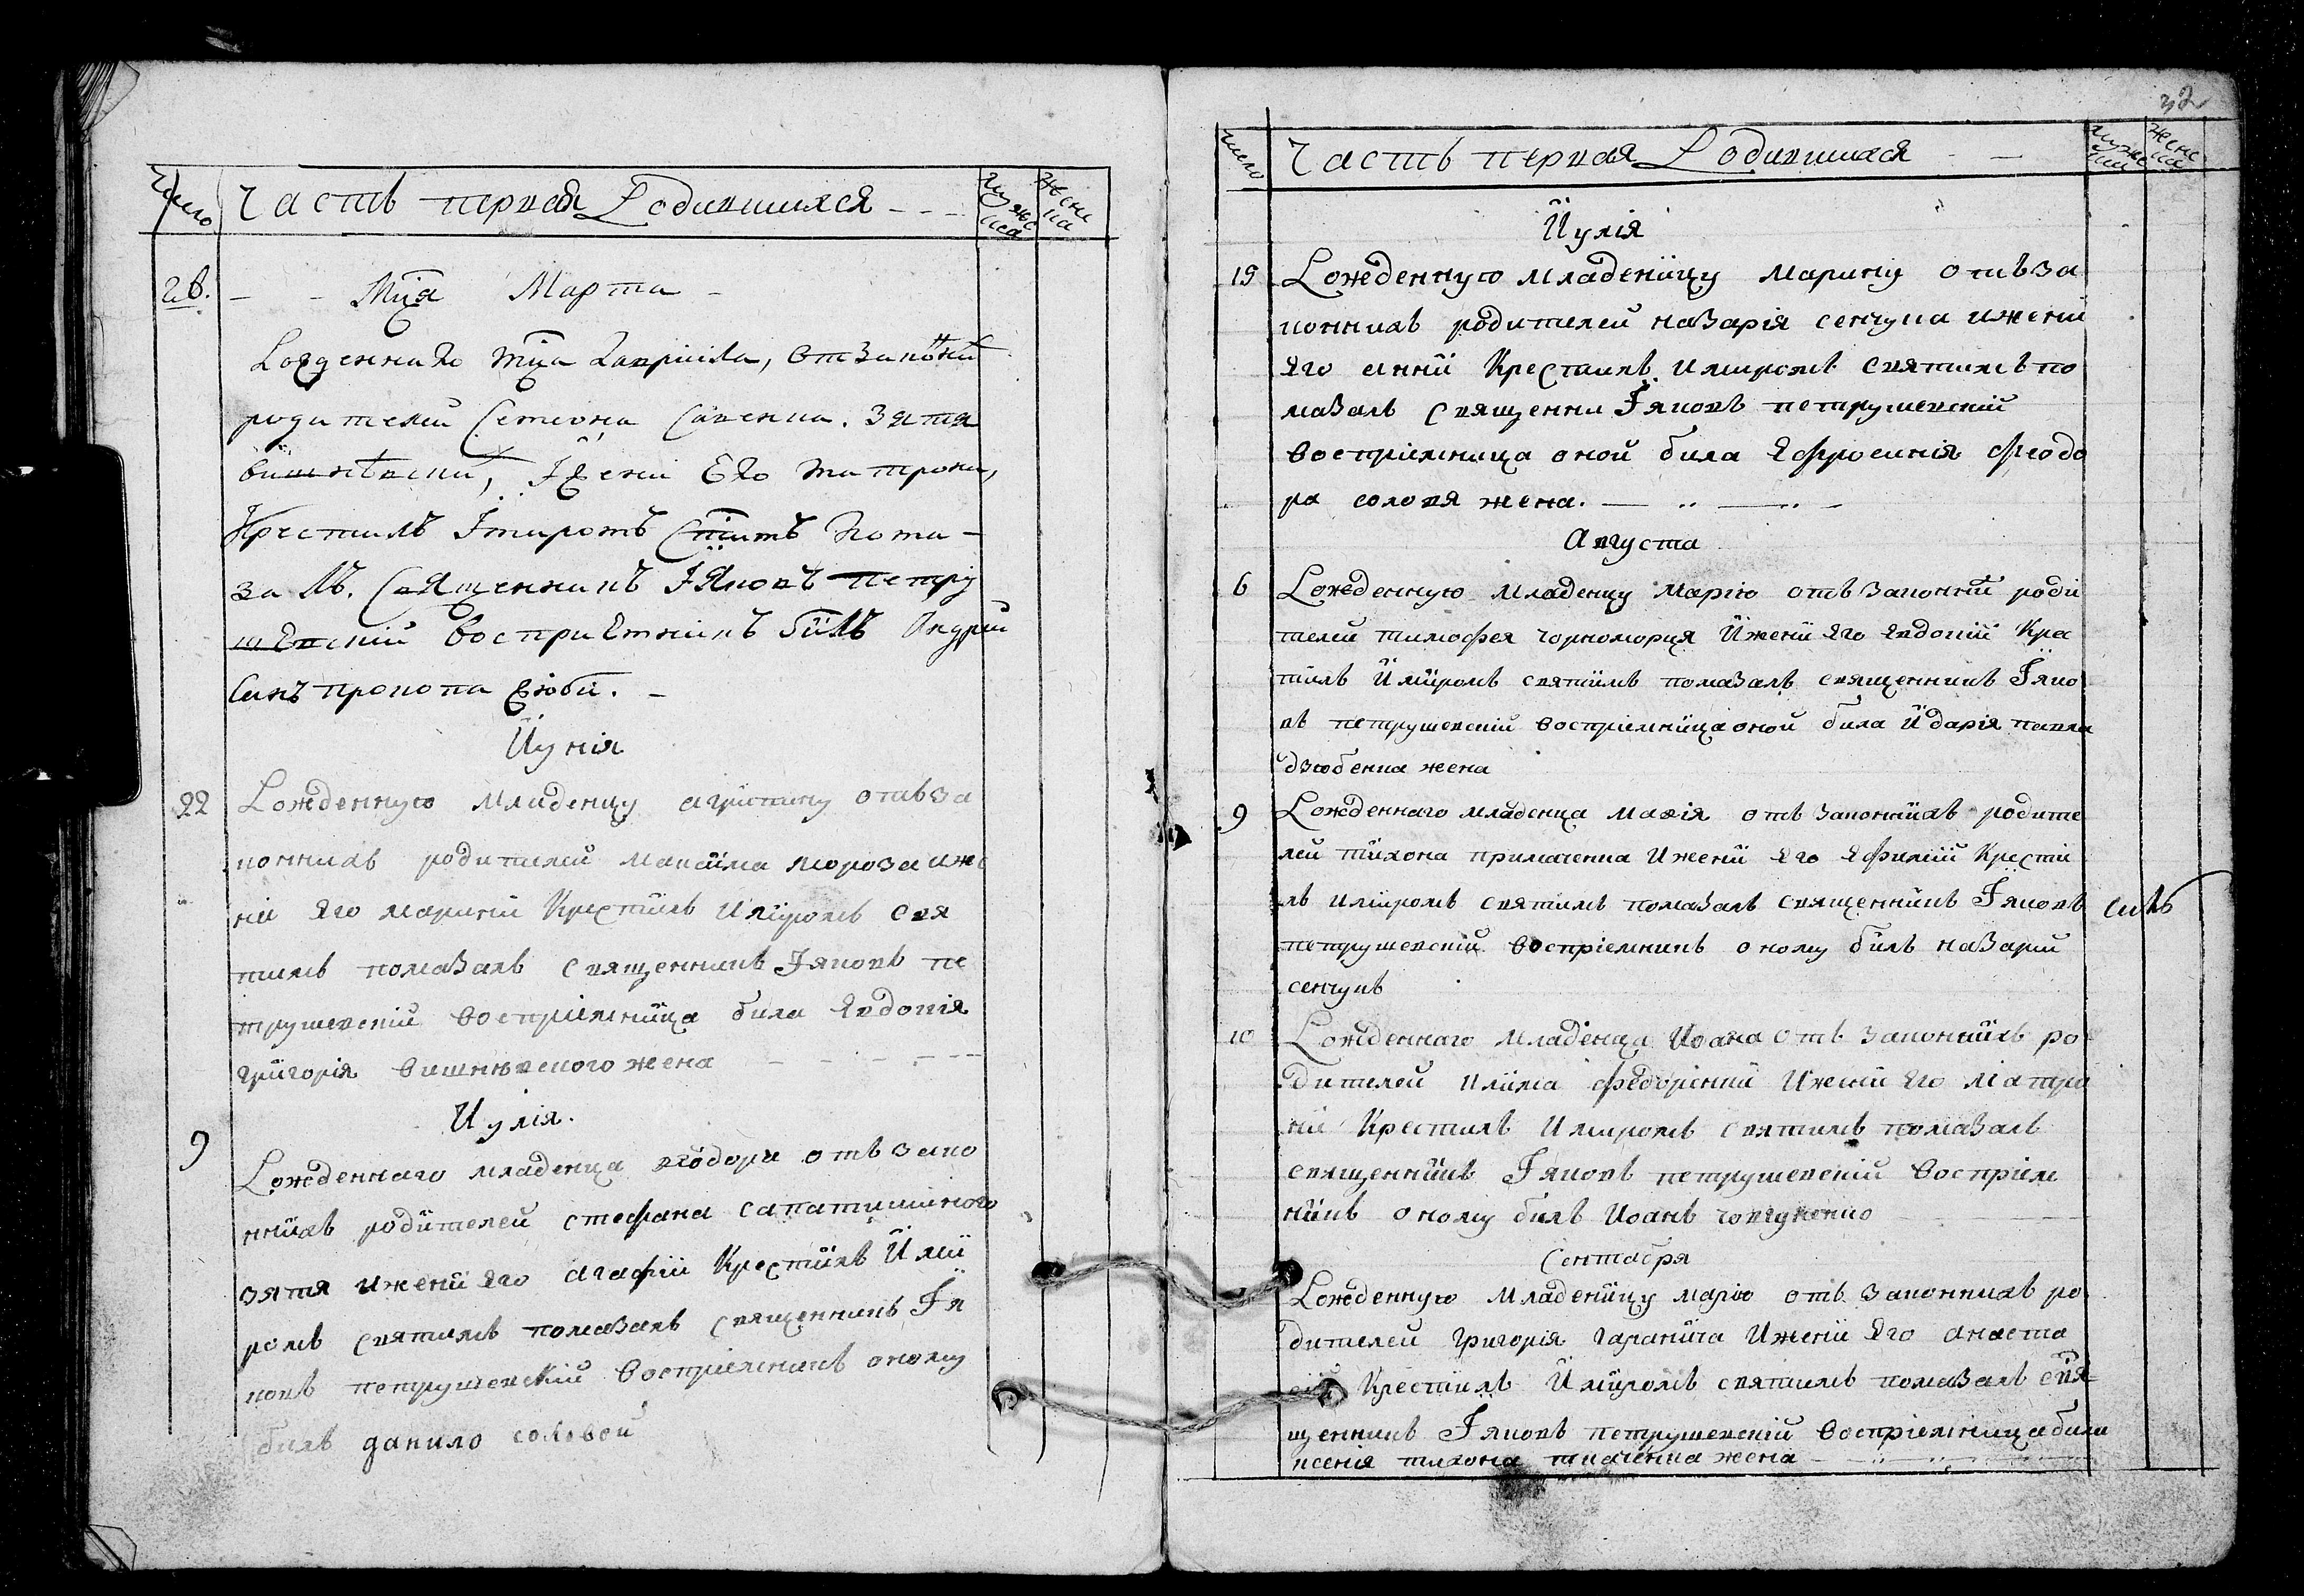 Число Часть первая Родившихся - - - мужеска женска
кв. - - Мца Марта -
Рожденнаго мца Гавриила, от законнй
родителей Семиона Савенка. зятя
вишнѣвский, Іжени Его матрони,
Крестилъ Імиромъ Стимъ Пома-
залъ. Священникъ Іяковъ петру
шевский восприемникъ билъ Андрий
Синъ прокопа
Йунія
22 Рожденную младенцу агрипину отъ за
конникъ родителей максима мороза ижс
ни Яго марини Крестилъ имиромъ свя
тимъ помазалъ священникъ Іяковъ пе
трушевский восприемница била Явдокия
григорія вишнювского жена - - - - - -
Иулія.
9 Рожденнаго младенца отъ зако
ннихъ родителей стефана сапатишиного
зятя ижени Яго агафии Крестилъ Йми
ромъ святимъ помазалъ священникъ Ія
ковъ петрушевский восприемникъ оному
билъ данило соловей
32
Число Часть первая Родившаяся - - мужес кий женс кий
Йулія
19 Рожденную младеницу марину отъ за
конникъ родителей назарія сенчука ижени
Яго анни Крестилъ имиромъ святимъ по
мазалъ священни Іяковъ петрушевский
восприемница оной била Яфросинія феодо
ра соловя жена. — .. —.. -
Августа
6 Рожденную младенцу марію отъ законнй роди
телей тимофея чорноморця Йжени Яго явдокий Крес
тилъ Ймиромъ святимъ помазалъ священникъ Іяко
въ петрушевский восприемница оной била Йдарія павла
дзюбенка жена
9 Рожденнаго младенца мавія отъ законнихъ родите
лей тихона примаченка Ижени Яго Яфимий Крести
лъ имиромъ святимъ помазалъ священникъ Іяковъ
петрушевский восприемникъ оному билъ назарий
сенчукъ
10 Рожденнаго младенца Иоана отъ законнихъ ро
дителей клима Ижени Яго матро
ни Крестилъ Имиромъ святимъ помазалъ
священникъ Іяковъ петрушевский восприем
никъ оному билъ Иоанъ
Сентабря
Рожденную младеницу марію отъ законникъ ро
дителей григорія гаранича Ижени Яго анаста
сий Крестилъ Ймиромъ святимъ помазалъ свя-
щенникъ Іяковъ петрушевский восприемница била
ксенія тихона ткаченка жена